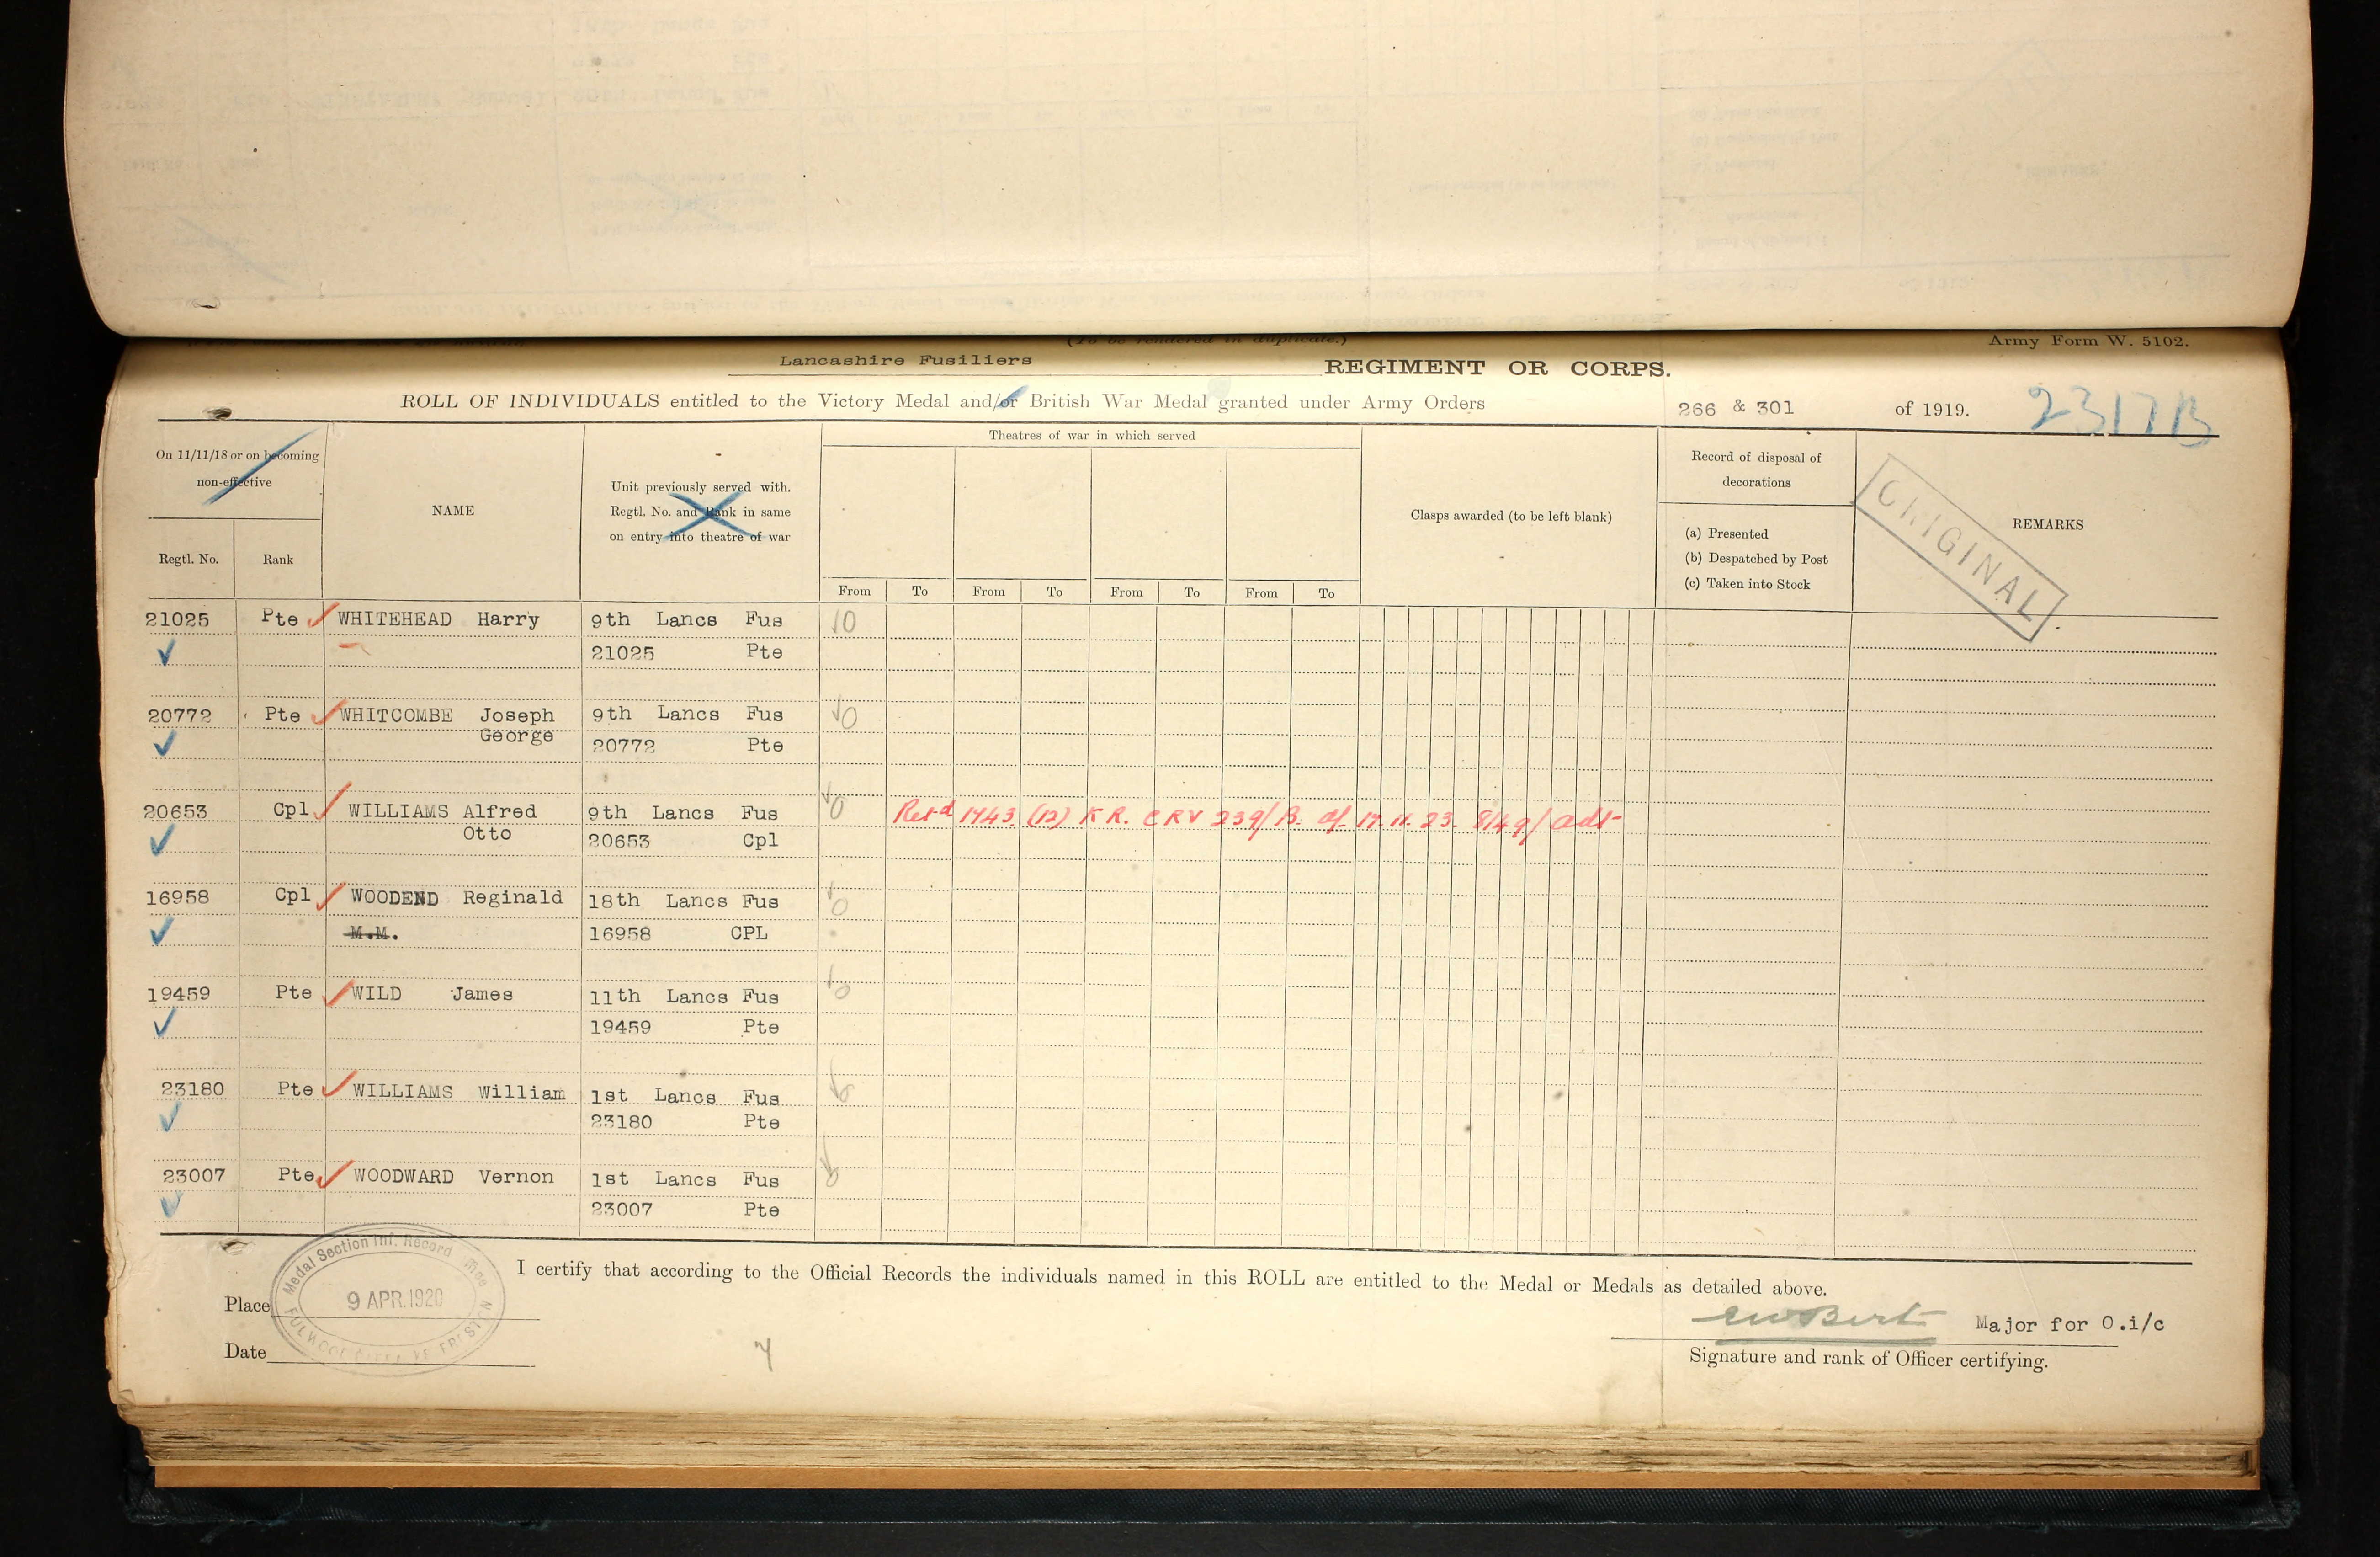 (To be rendered in duplicate.)
Army Form W. 5102.
Lancashire Fusiliers REGIMENT OR CORPS.
ROLL OF INDIVIDUALS entitled to the Victory Medal and/or British War Medal granted under Army Orders 266 & 301 of 1919. 2317B
On 11/11/18 or on becoming non-effective
Regtl. No.
Rank
NAME
Unit previously served with.
Regtl. No. and Rank in same
on entry into theatre of war
Theatres of war in which served
From To From To From To From To
Clasps awarded (to be left blank)
Record of disposal of
decorations
(a) Presented
(b) Despatched by Post
(c) Taken into Stock
REMARKS
ORIGINAL
21025 Pte WHITEHEAD Harry 9th Lancs Fus
21025 Pte
20772 Pte WHITCOMBE Joseph 9th Lancs Fus
George
20772 Pte
20653 Cpl WILLIAMS Alfred 9th Lancs Fus Retd 1743 (12) K R. CRV 239/B. of 17.11.23. 8149/adt
Otto
20653 Cpl
16958 Cpl WOODEND Reginald 18th Lancs Fus
M.M. 16958 CPL
19459 Pte WILD James 11th Lancs Fus
19459 Pte
23180 Pte WILLIAMS William 1st Lancs Fus
23180 Pte
23007 Pte WOODWARD Vernon 1st Lancs Fus
23007 Pte
I certify that according to the Official Records the individuals named in this ROLL are entitled to the Medal or Medals as detailed above.
Medal Section Inf. Record
9 APR. 1920
Place
Date
Major for O.i/c
Signature and rank of Officer certifying.